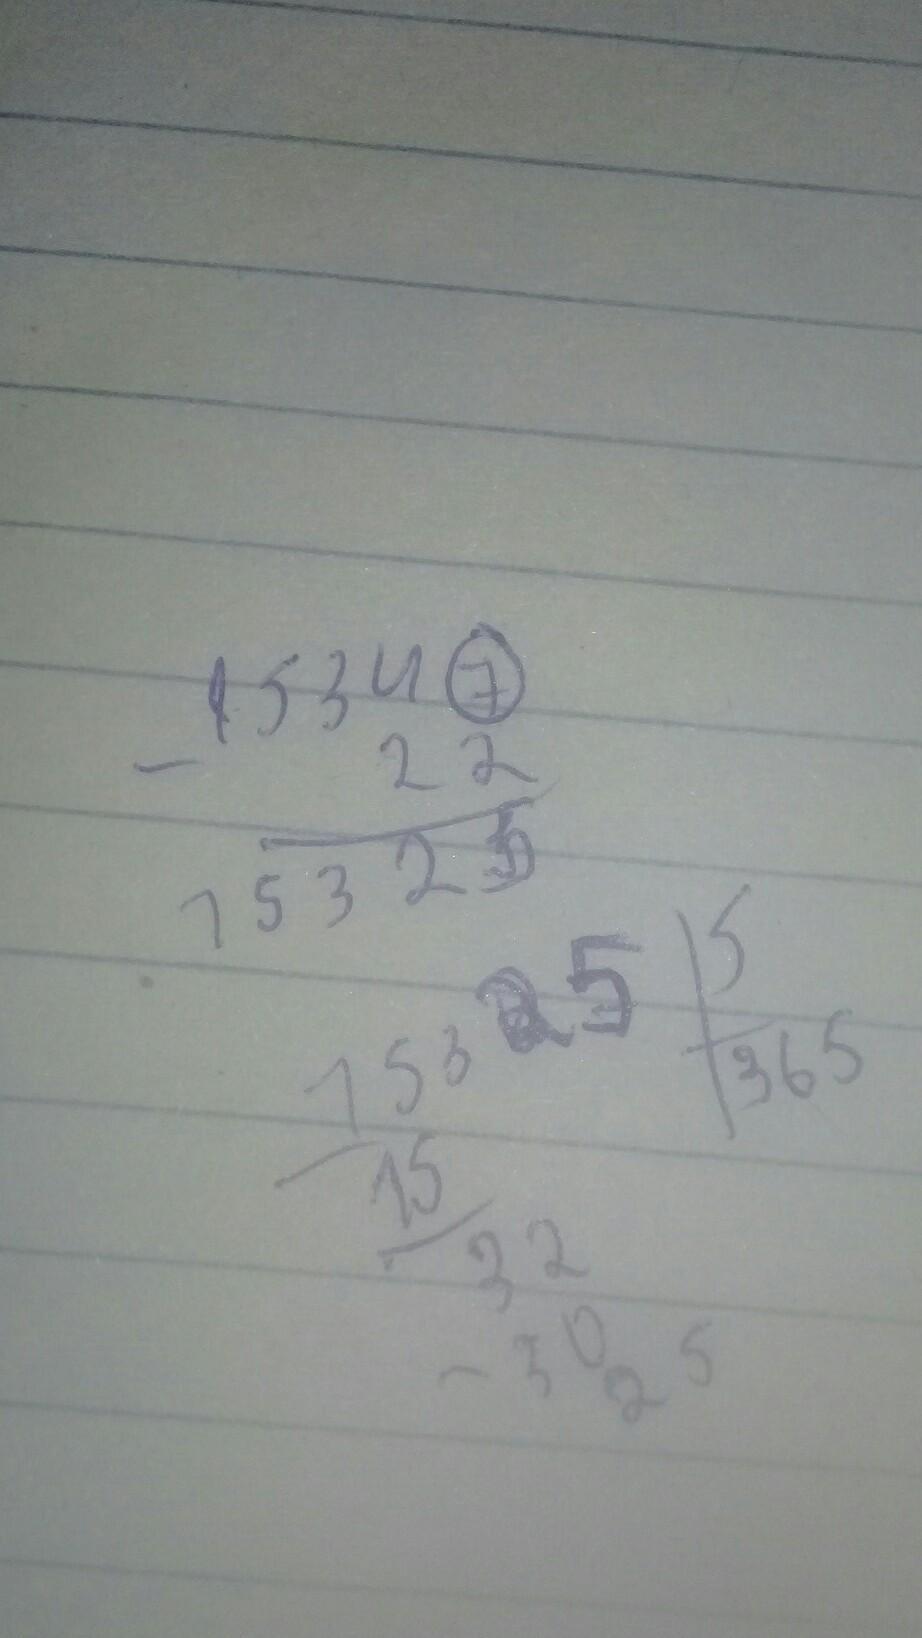 15347
- 22
15325
15325 5
365
- 15
32
- 30
25